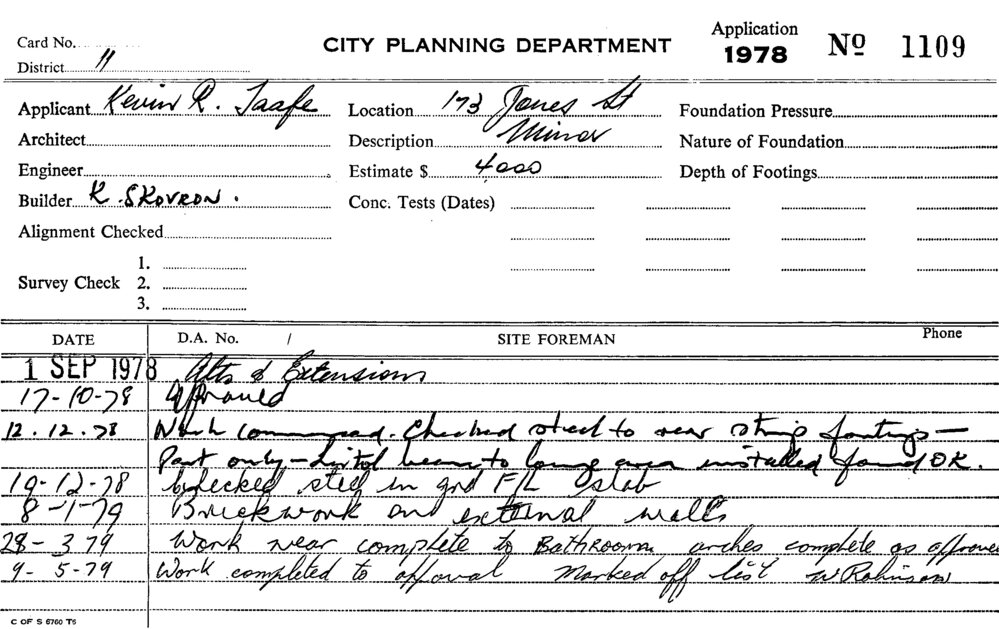 Card No.
CITY PLANNING DEPARTMENT
Application
1978 No 1109
District 11
Applicant Kevin R. Taafe Location 173 Jones St Foundation Pressure
Architect Description Minor Nature of Foundation
Engineer Estimate $ 4000 Depth of Footings
Builder K. SKOVRON. Conc. Tests (Dates)
Alignment Checked
1.
Survey Check 2.
3.
DATE D.A. No. / SITE FOREMAN Phone
1 SEP 1978 Alts & Extensions
17-10-78 Approved
12.12.78 Work commenced. Checked steel to rear strip footings —
Part only — beam to lounge area installed found OK.
19-12-78 Checked steel in grd F/L slab
8-1-79 Brickwork and external walls
28-3 79 Work near complete to Bathroom arches complete as approved
9-5-79 Work completed to approval Marked off list W Robinson
C OF S 6760 T6